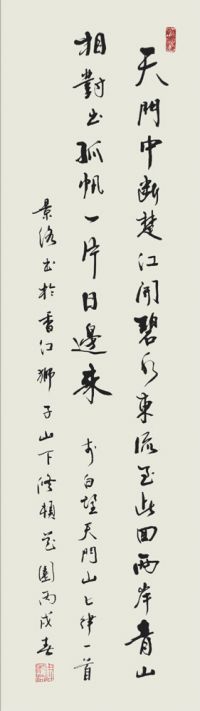 天門中断楚江開碧水東流至此回兩岸青山
相對出孤帆一片日邊來 李白望天門山七律一首
景洛書於香江獅子山下修頓花園丙戌春